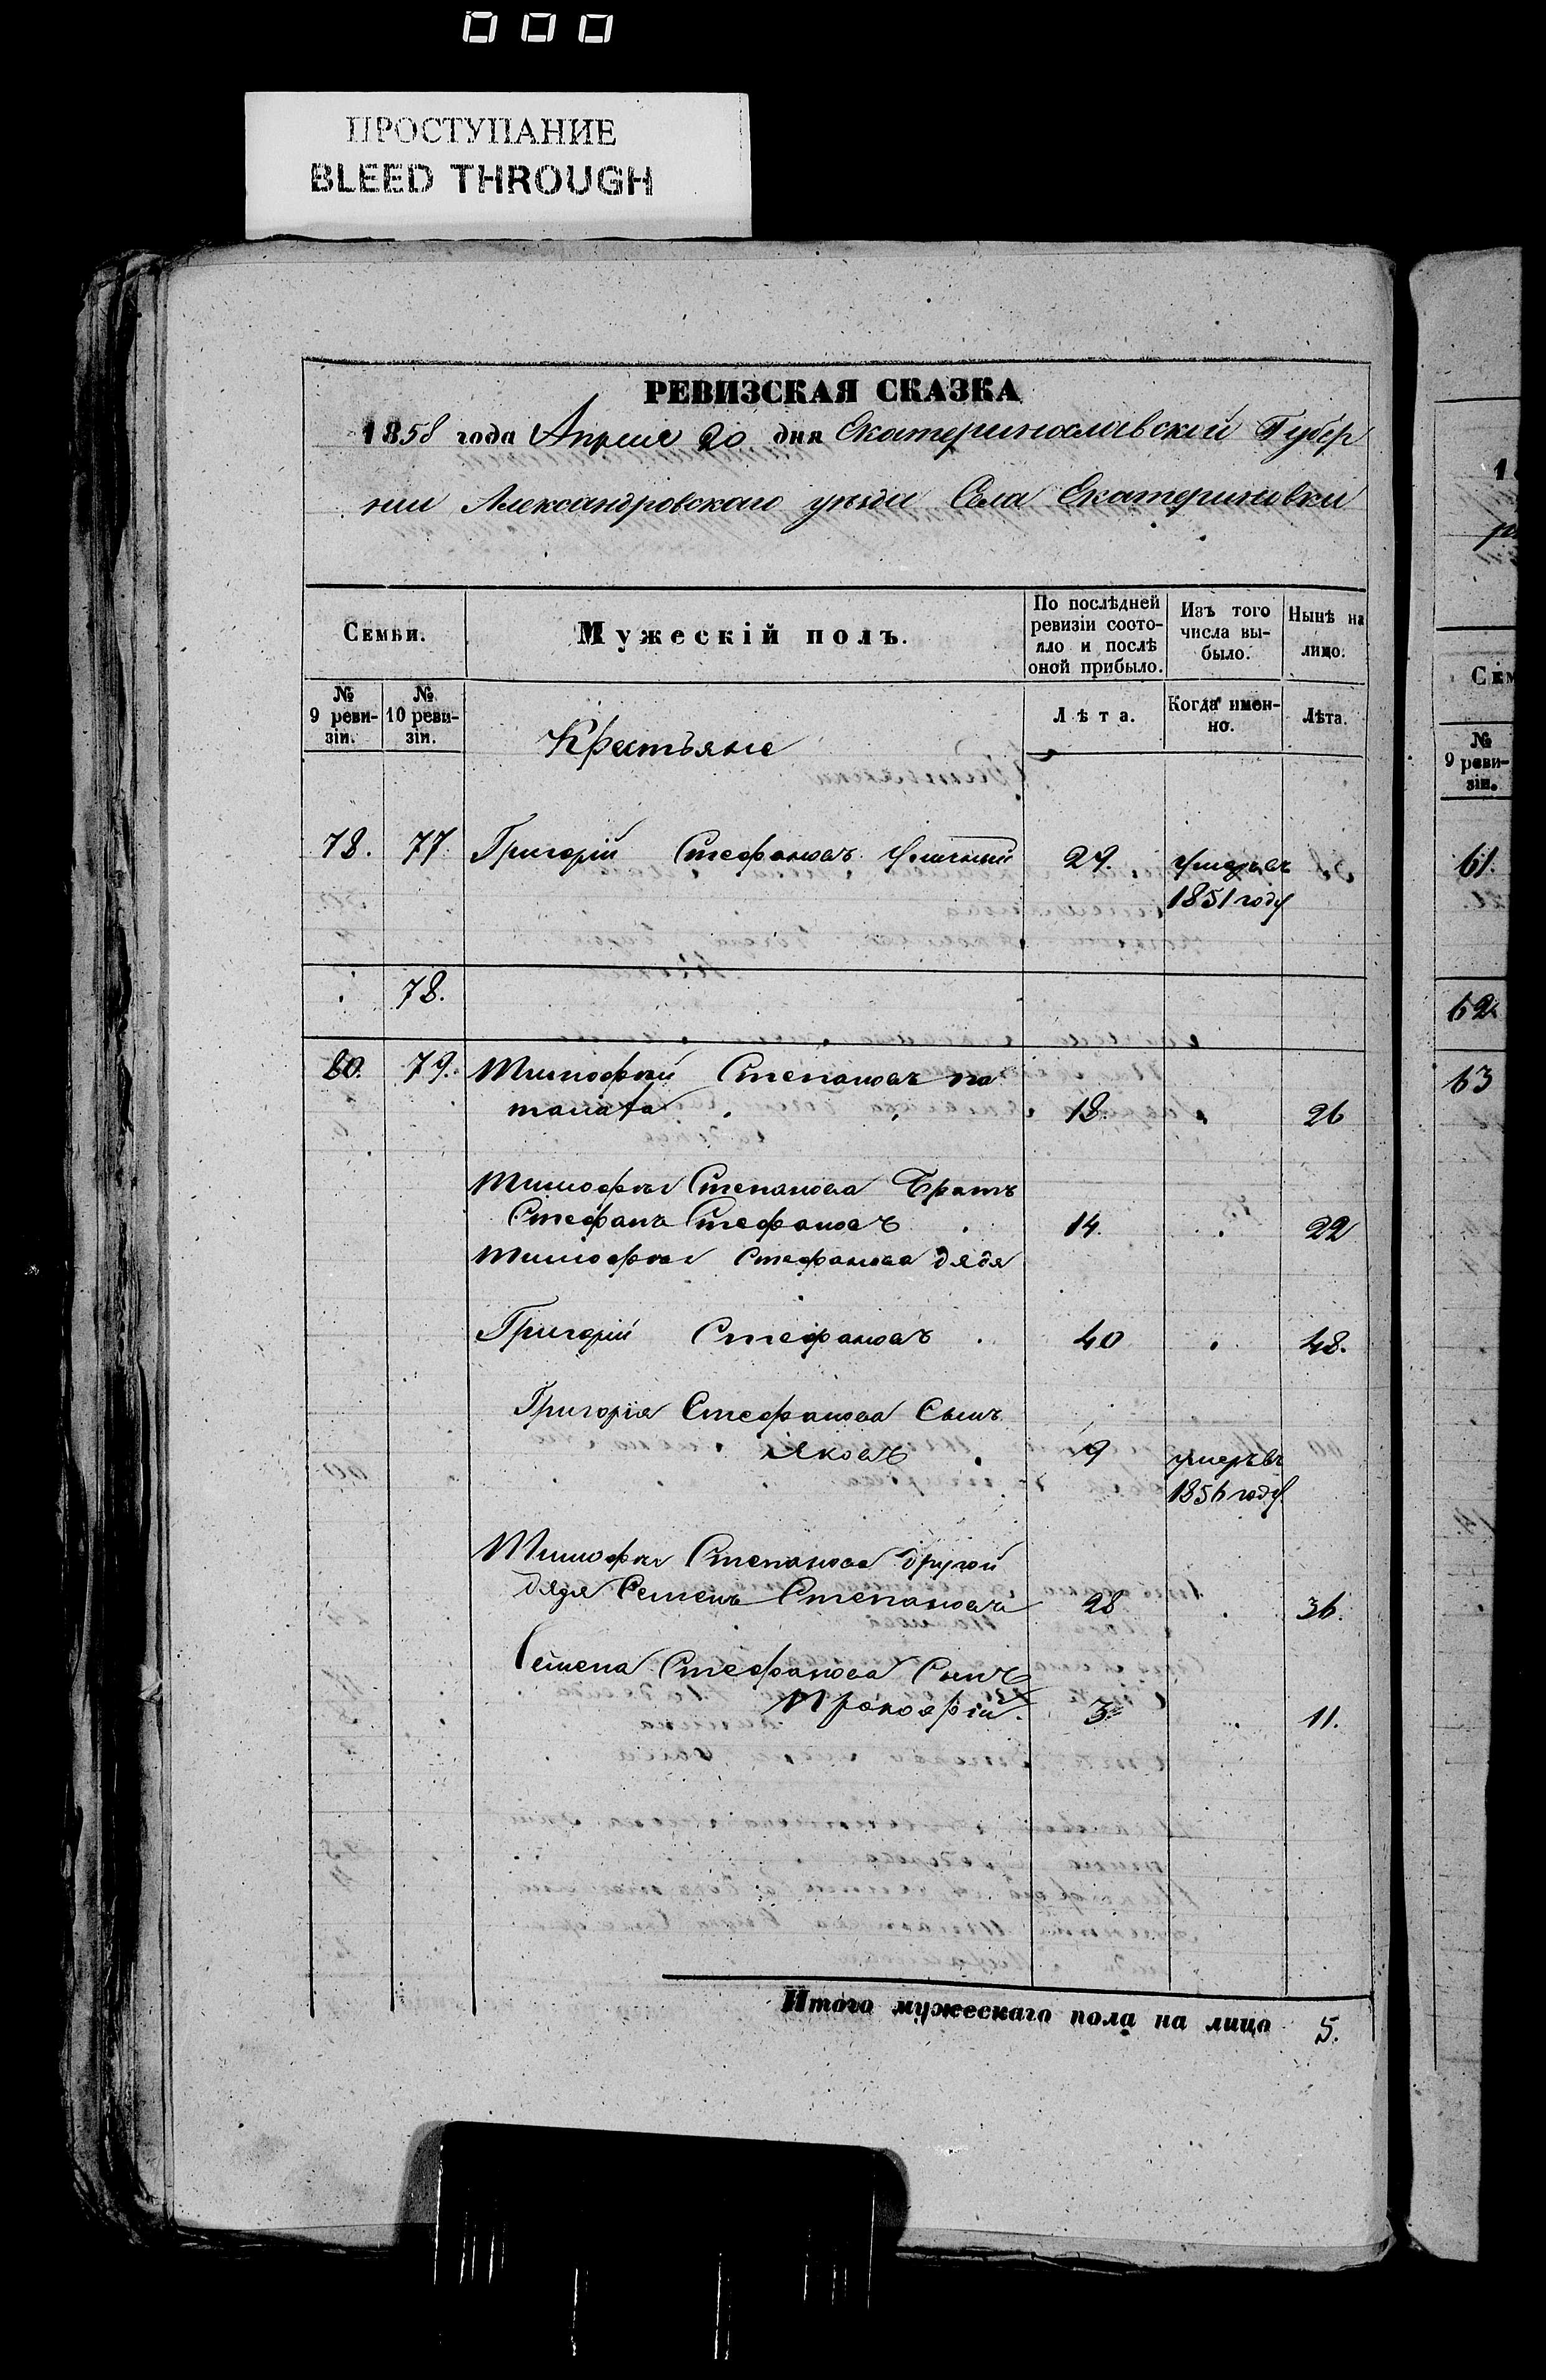 ПРОСТУПАНИЕ
BLEED THROUGH
РЕВИЗСКАЯ СКАЗКА
1858 года Апреля 20 дня Екатеринославской Губер
нии Александровскаго уезда Села Екатериновки
Семьи.
Мужескій полъ.
По послѣдней ревизіи состо-
яло и послѣ
оной прибыло.
Изъ того
числа вы-
было.
Нынѣ на
лицо.
№
9 реви-
зіи.
№
10 реви-
зіи.
Лѣта.
Когда имен-
но.
Лѣта.
Крестьяне
78. 77. Григорій Стефановъ 29. умеръвъ
1851 году
78.
80. 79. Тимофей Степановъ
18. 26
Тимофея Степанова Братъ
Стефанъ Стефановъ 14. 22
Тимофея Стефанова дядя
Григорій Стефановъ 40 48.
Григорія Стефанова Сынъ
Яковъ 9 умеръвъ
1856 году
Тимофея Степанова другой
дядя Семенъ Степановъ 28 36.
Семена Стефанова Сынъ
Прокофій. 3 11.
Итого мужескаго пола на лицо 5.
Сем
№
9 реви-
зіи.
61.
62
63